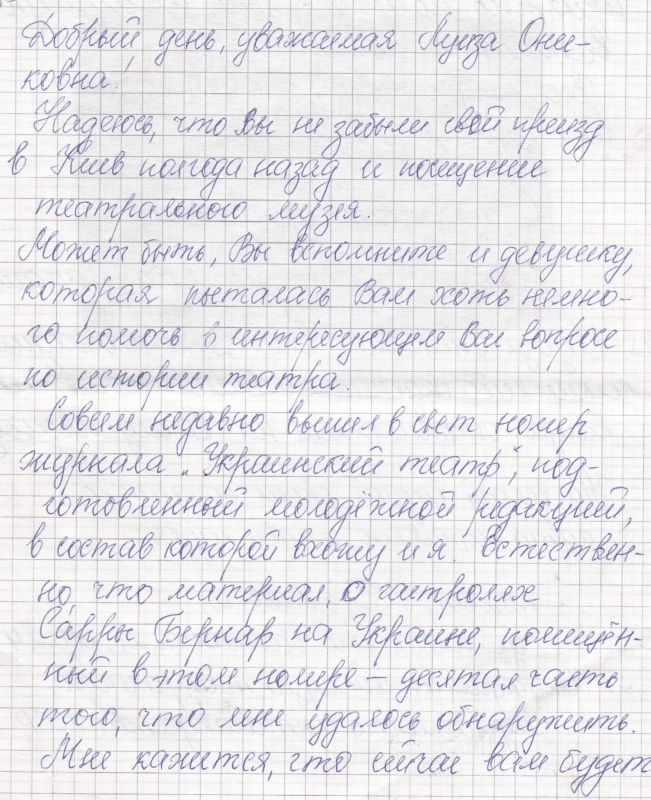 Добрый день, уважаемая Луиза Они-
ковна!
Надеюсь, что Вы не забыли свой приезд
в Киев полгода назад и посещение
театрального музея.
Может быть, Вы вспомните и девушку,
которая пыталась Вам хоть немно-
го помочь в интересующем Вас вопросе
по истории театра.
Совсем недавно вышел в свет номер
журнала „Украинский театр", под-
готовленный молодёжной редакцией,
в состав которой вхожу и я. Естествен-
но, что материал, о гастролях
Сарры Бернар на Украине, помещён-
ный в этом номере – десятая часть
того, что мне удалось обнаружить.
Мне кажется, что сейчас вам будет